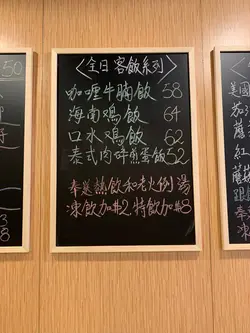 <全日 客飯系列>
咖喱牛腩飯 58
海南鸡飯 64
口水鸡飯 62
泰式肉碎煎蛋飯 52
奉送熱飲和老火例湯
凍飲加#2 特飲加#8
50
3
8
美國
茄汁
蘑
紅
蘑菇